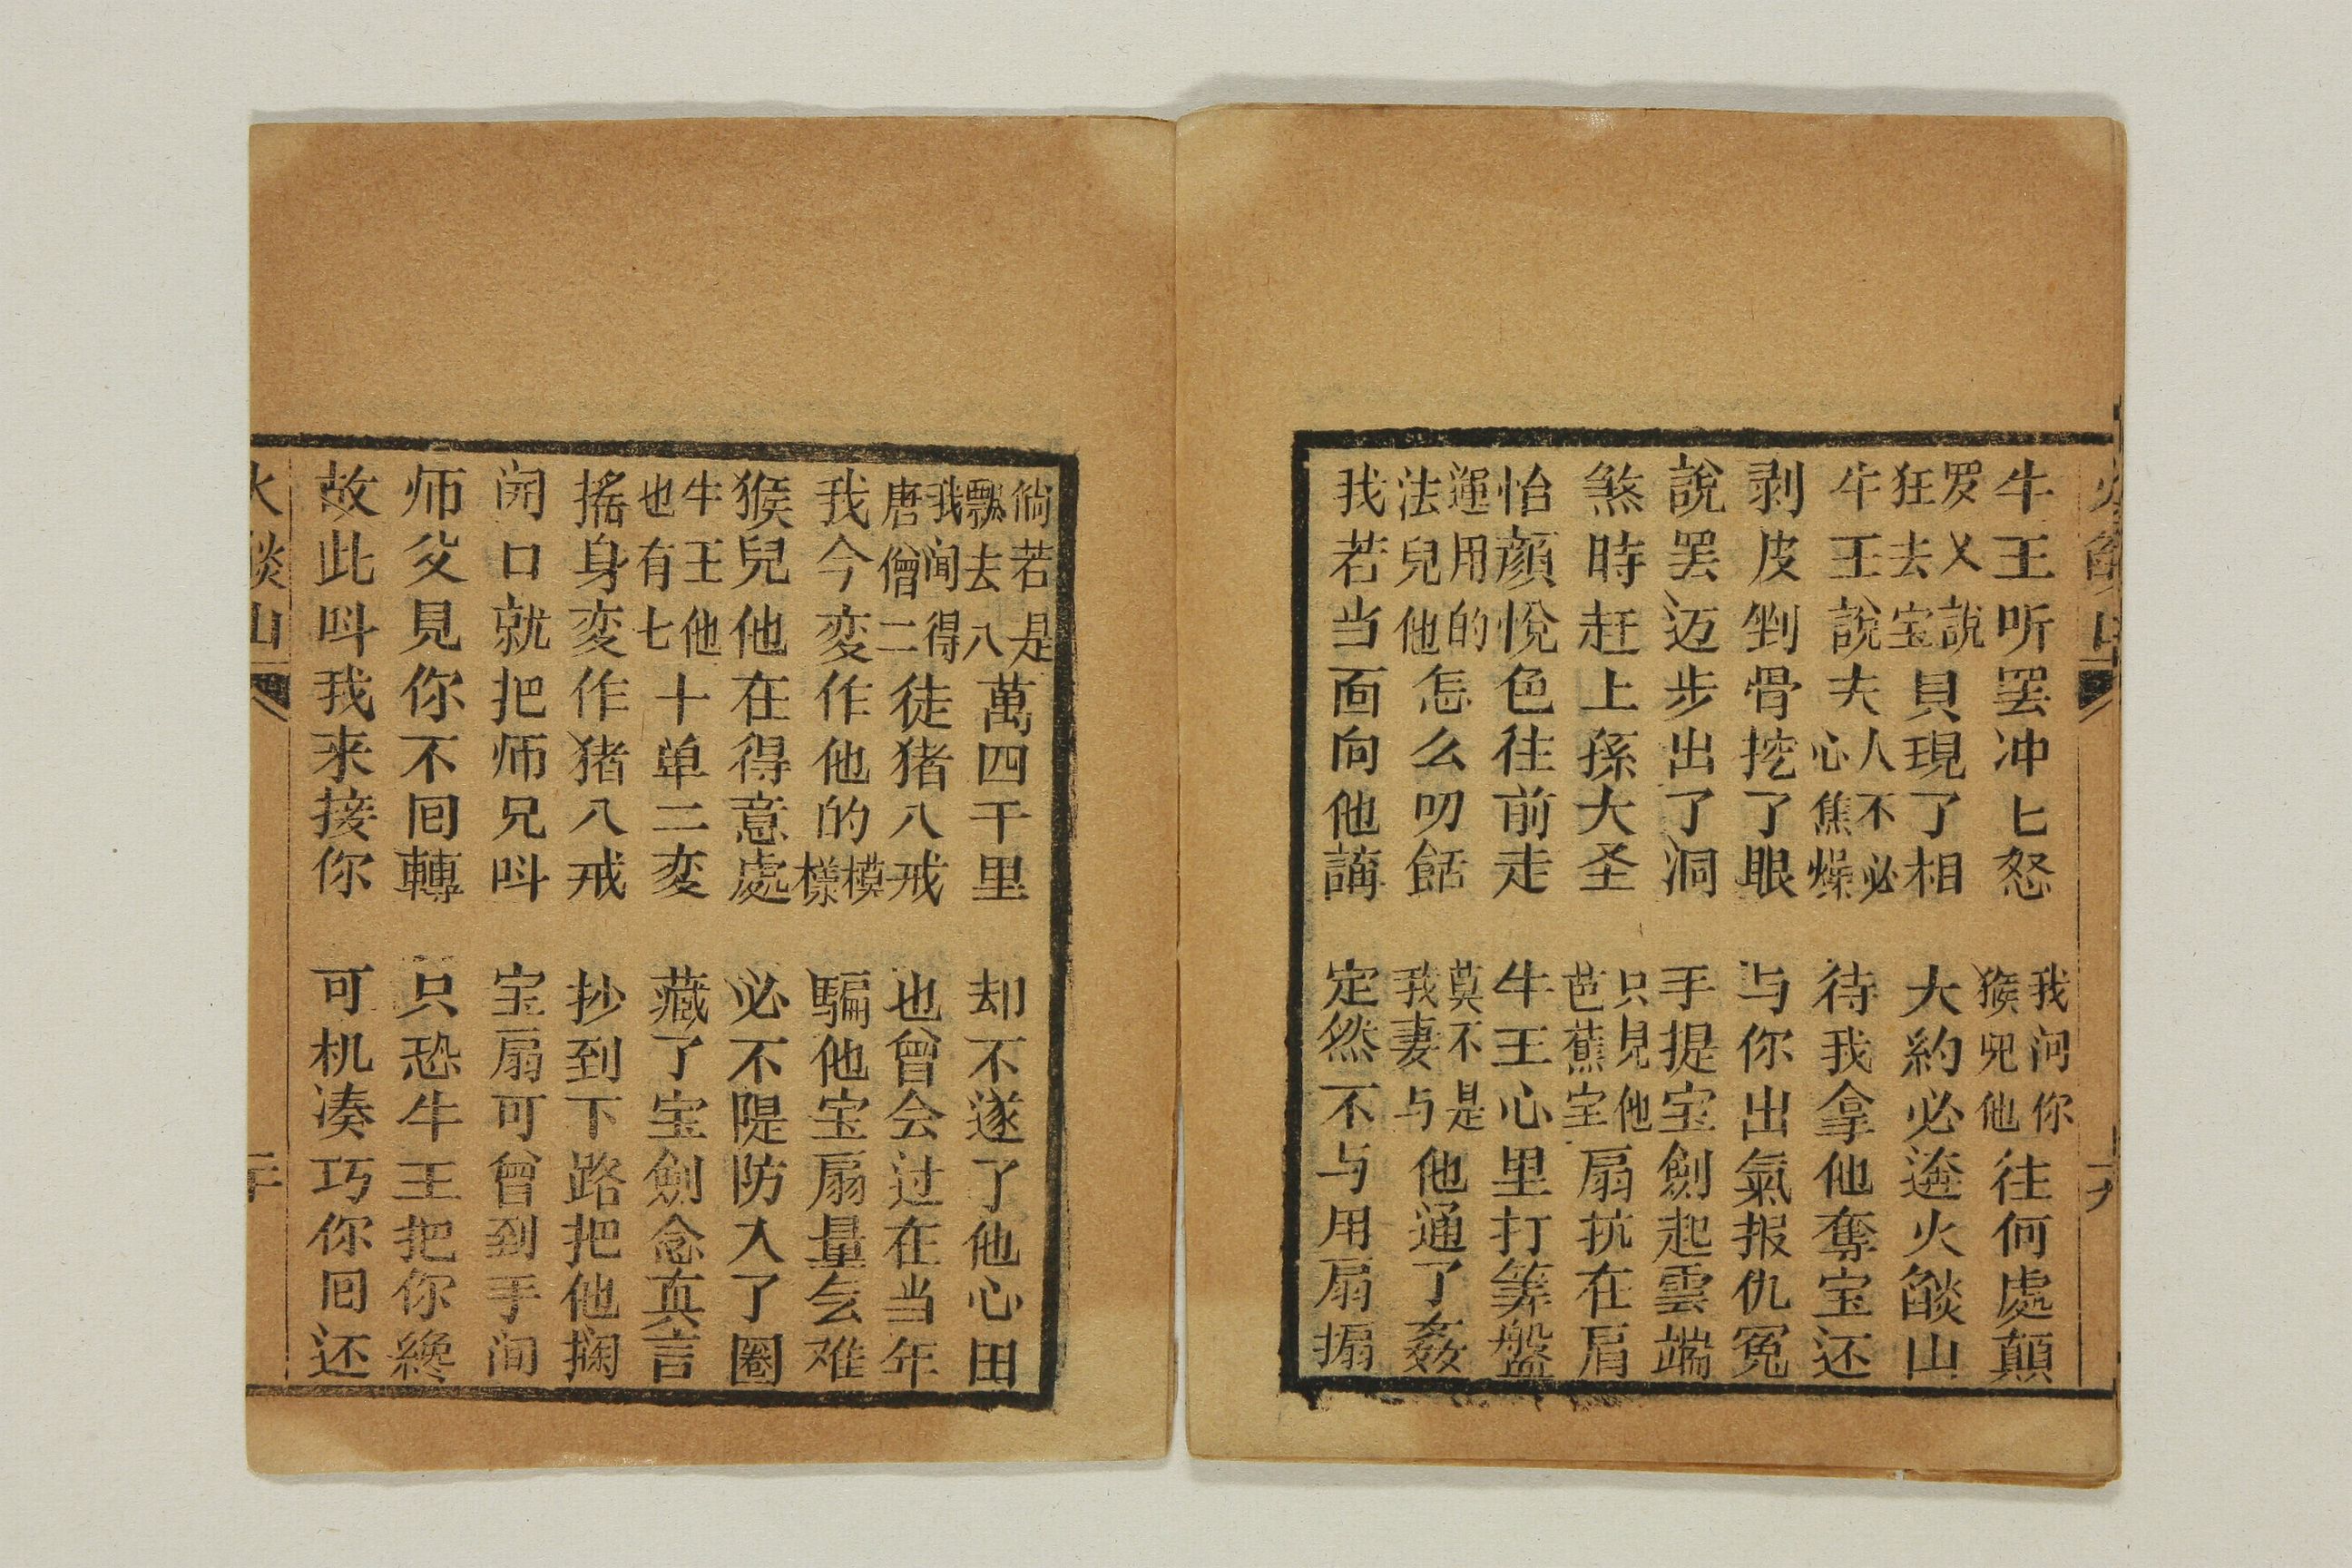 火燄山 十九
牛王听罢冲匕怒 我问你猴兒他往何處顛
罗乂說狂去宝貝現了相 大約必遶火燄山
牛王說夫人不必心焦燥 待我拿他奪宝还
剥皮剉骨挖了眼 与你出氣报仇冤
說罢迈步出了洞 手提宝劍起雲端
煞時赶上孫大圣 只見他芭蕉宝扇抗在肩
怡顔悅色往前走 牛王心里打筭盤
運用的法兒他怎么叨餂 莫不是我妻与他通了姦
我若当面向他講 定然不与用扇搧
倘若是飄去八萬四千里 却不遂了他心田
我闻得唐僧二徒猪八戒 也曾会过在当年
我今変作他的模樣 騙他宝扇量难
猴兒他在得意處 必不隄防入了圈
牛王他也有七十单二変 藏了宝劍念真言
搖身変作猪八戒 抄到下路把他攔
闬口就把师兄呌 宝扇可曾到手间
师父見你不囘轉 只恐牛王把你纔
故此呌我来接你 可机凑巧你囘还
火燄山 二十